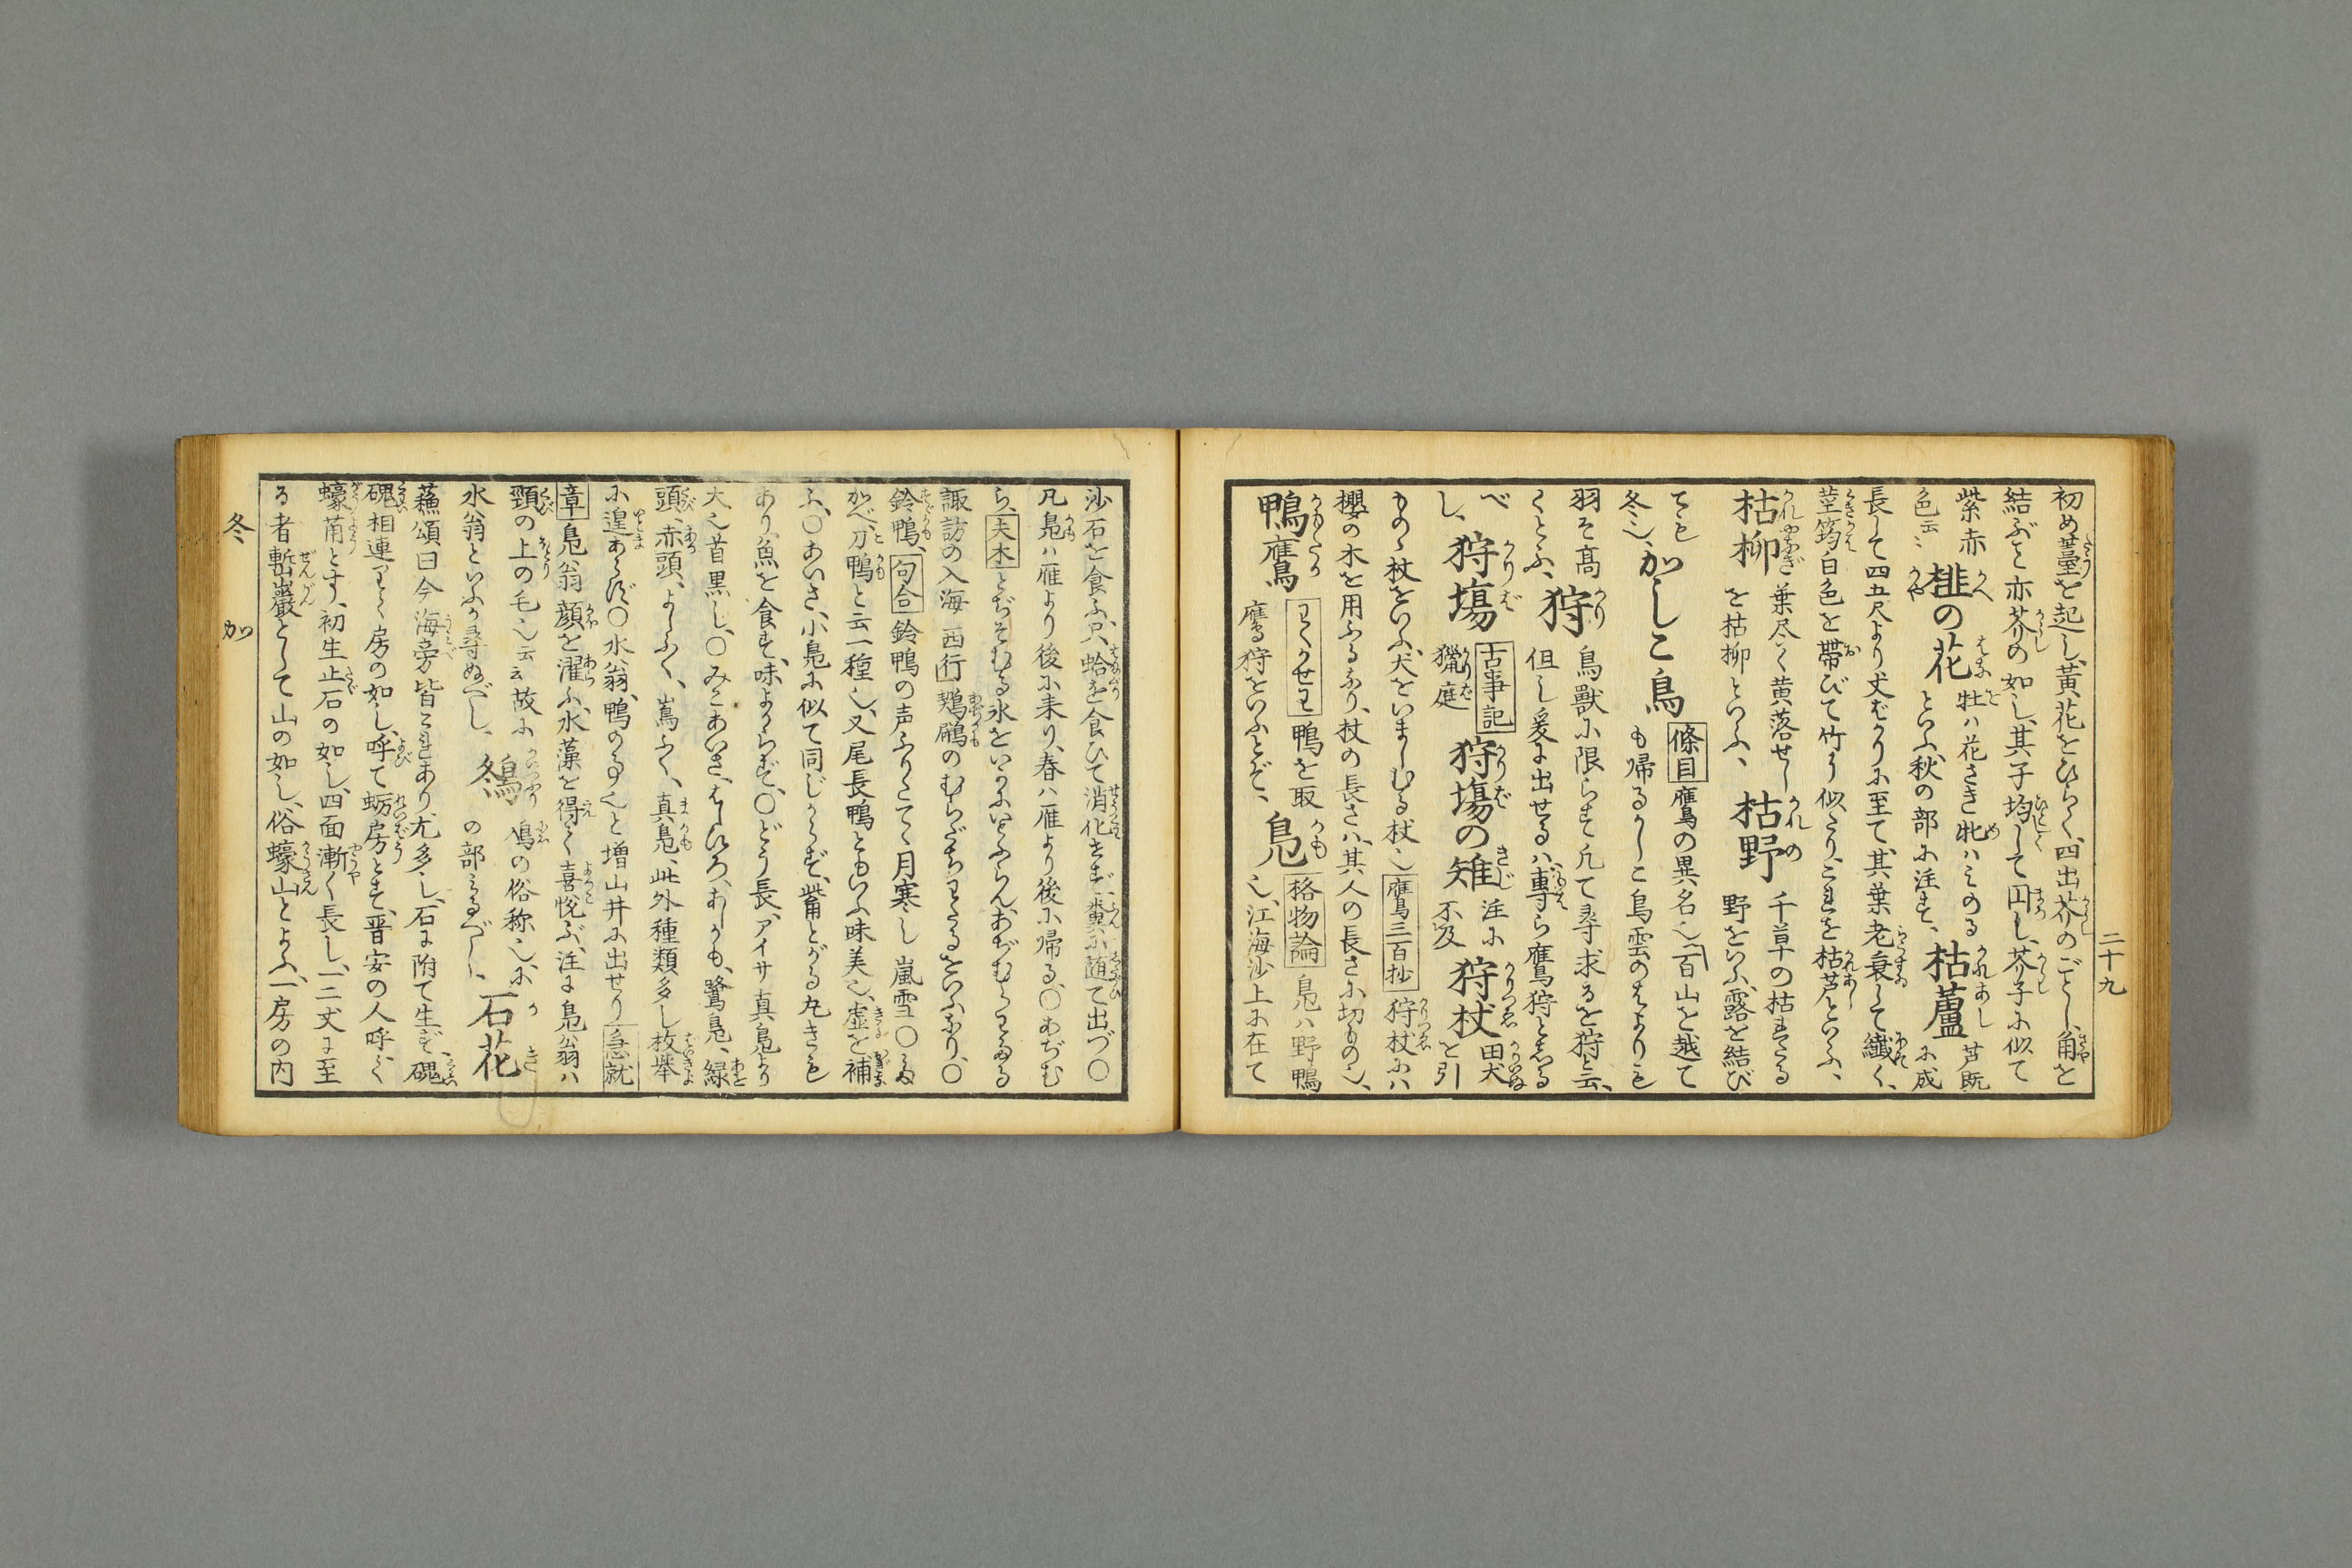 二十九
初め薹を起し、黄花をひらく、四出芥のごとし、角を
結ぶこと亦芥の如し、其子均して円し、芥子に似て
紫赤
色云〻
榧の花
牡ハ花さき牝ハみのる
といふ、秋の部に注す、
枯蘆
芦既
に成
長して四五尺より丈ばかりに至て、其葉老衰して纎く、
茎筠白色を帯びて竹に似たり、これを枯芦といふ、
枯柳
葉尽く黄落せし
を枯柳といふ、
枯野
千草の枯れたる
野をいふ、露を結び
ても
冬也、
かしこ鳥
條目 鷹の異名也、百山を越て
も帰るかしこ鳥雲のはよりも
羽そ高
くとふ、
狩
鳥獸に限らず凡て尋求るを狩と云、
但し爰に出せるハ専ら鷹狩と知る
べ
し、
狩場
古事記
獵庭
狩場の雉
注に
不及
狩杖
田犬
を引
ものゝ杖をいふ、犬をいましむる杖也 鷹三百抄 狩杖にハ
櫻の木を用ふるなり、杖の長さハ、其人の長さに切もの也、
鴨鷹
わくかせわ 鴨を取
鷹狩をいふとぞ、
鳧
格物論 鳧ハ野鴨
也、江海沙上に在て
沙石を食ふ、只蛤を食ひて消化せず、糞に随て出づ○
凡鳧ハ雁より後に来り、春ハ雁より後に帰る、○あぢむ
ら、夫木 とぢそむる氷をいかにいとふらんあぢむらわたる
諏訪の入海 西行 鵊鸍のむらだちわたるをいふなり、○
鈴鴨、句合 鈴鴨の声ふりたてゝ月寒し 嵐雪 ○かる
がべ、刀鴨と云一種也、又尾長鴨ともいふ味美也、虚を補
ふ、○あいさ、小鳧に似て同じからず、觜とがる丸きも
あり、魚を食す、味よからず、○どう長、アイサ真鳧より
大也首黒し、○みこあいさ、はしびろ、あしかも、鷺鳧、緑
頭、赤頭、よしふく、嶌ふく、真鳧、此外種類多し枚挙
に遑あらず○水翁、鴨のる也と増山井に出せり 急就
章 鳧翁顔を濯ふ、水藻を得て喜悦ぶ、注に鳧翁ハ
頸の上の毛也云云故に
水翁といふか尋ぬべし、
鵼
鳰の俗称也、
の部みるべし、
石花
蘓頌曰今海旁皆これあり尤多し、石に附て生ず、磈
磈相連りて房の如し、呼て蛎房とす、晋安の人呼て
蠔莆とす、初生止石の如し、四面漸く長し、一二丈に至
る者嶄巖として山の如し、俗蠔山とよぶ、一房の内
冬　加